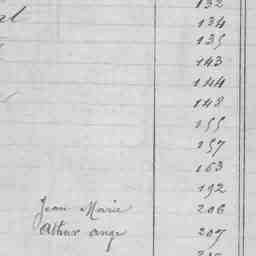 132
134
135
143
144
148
155
157
163
192
Jean Marie 206
207